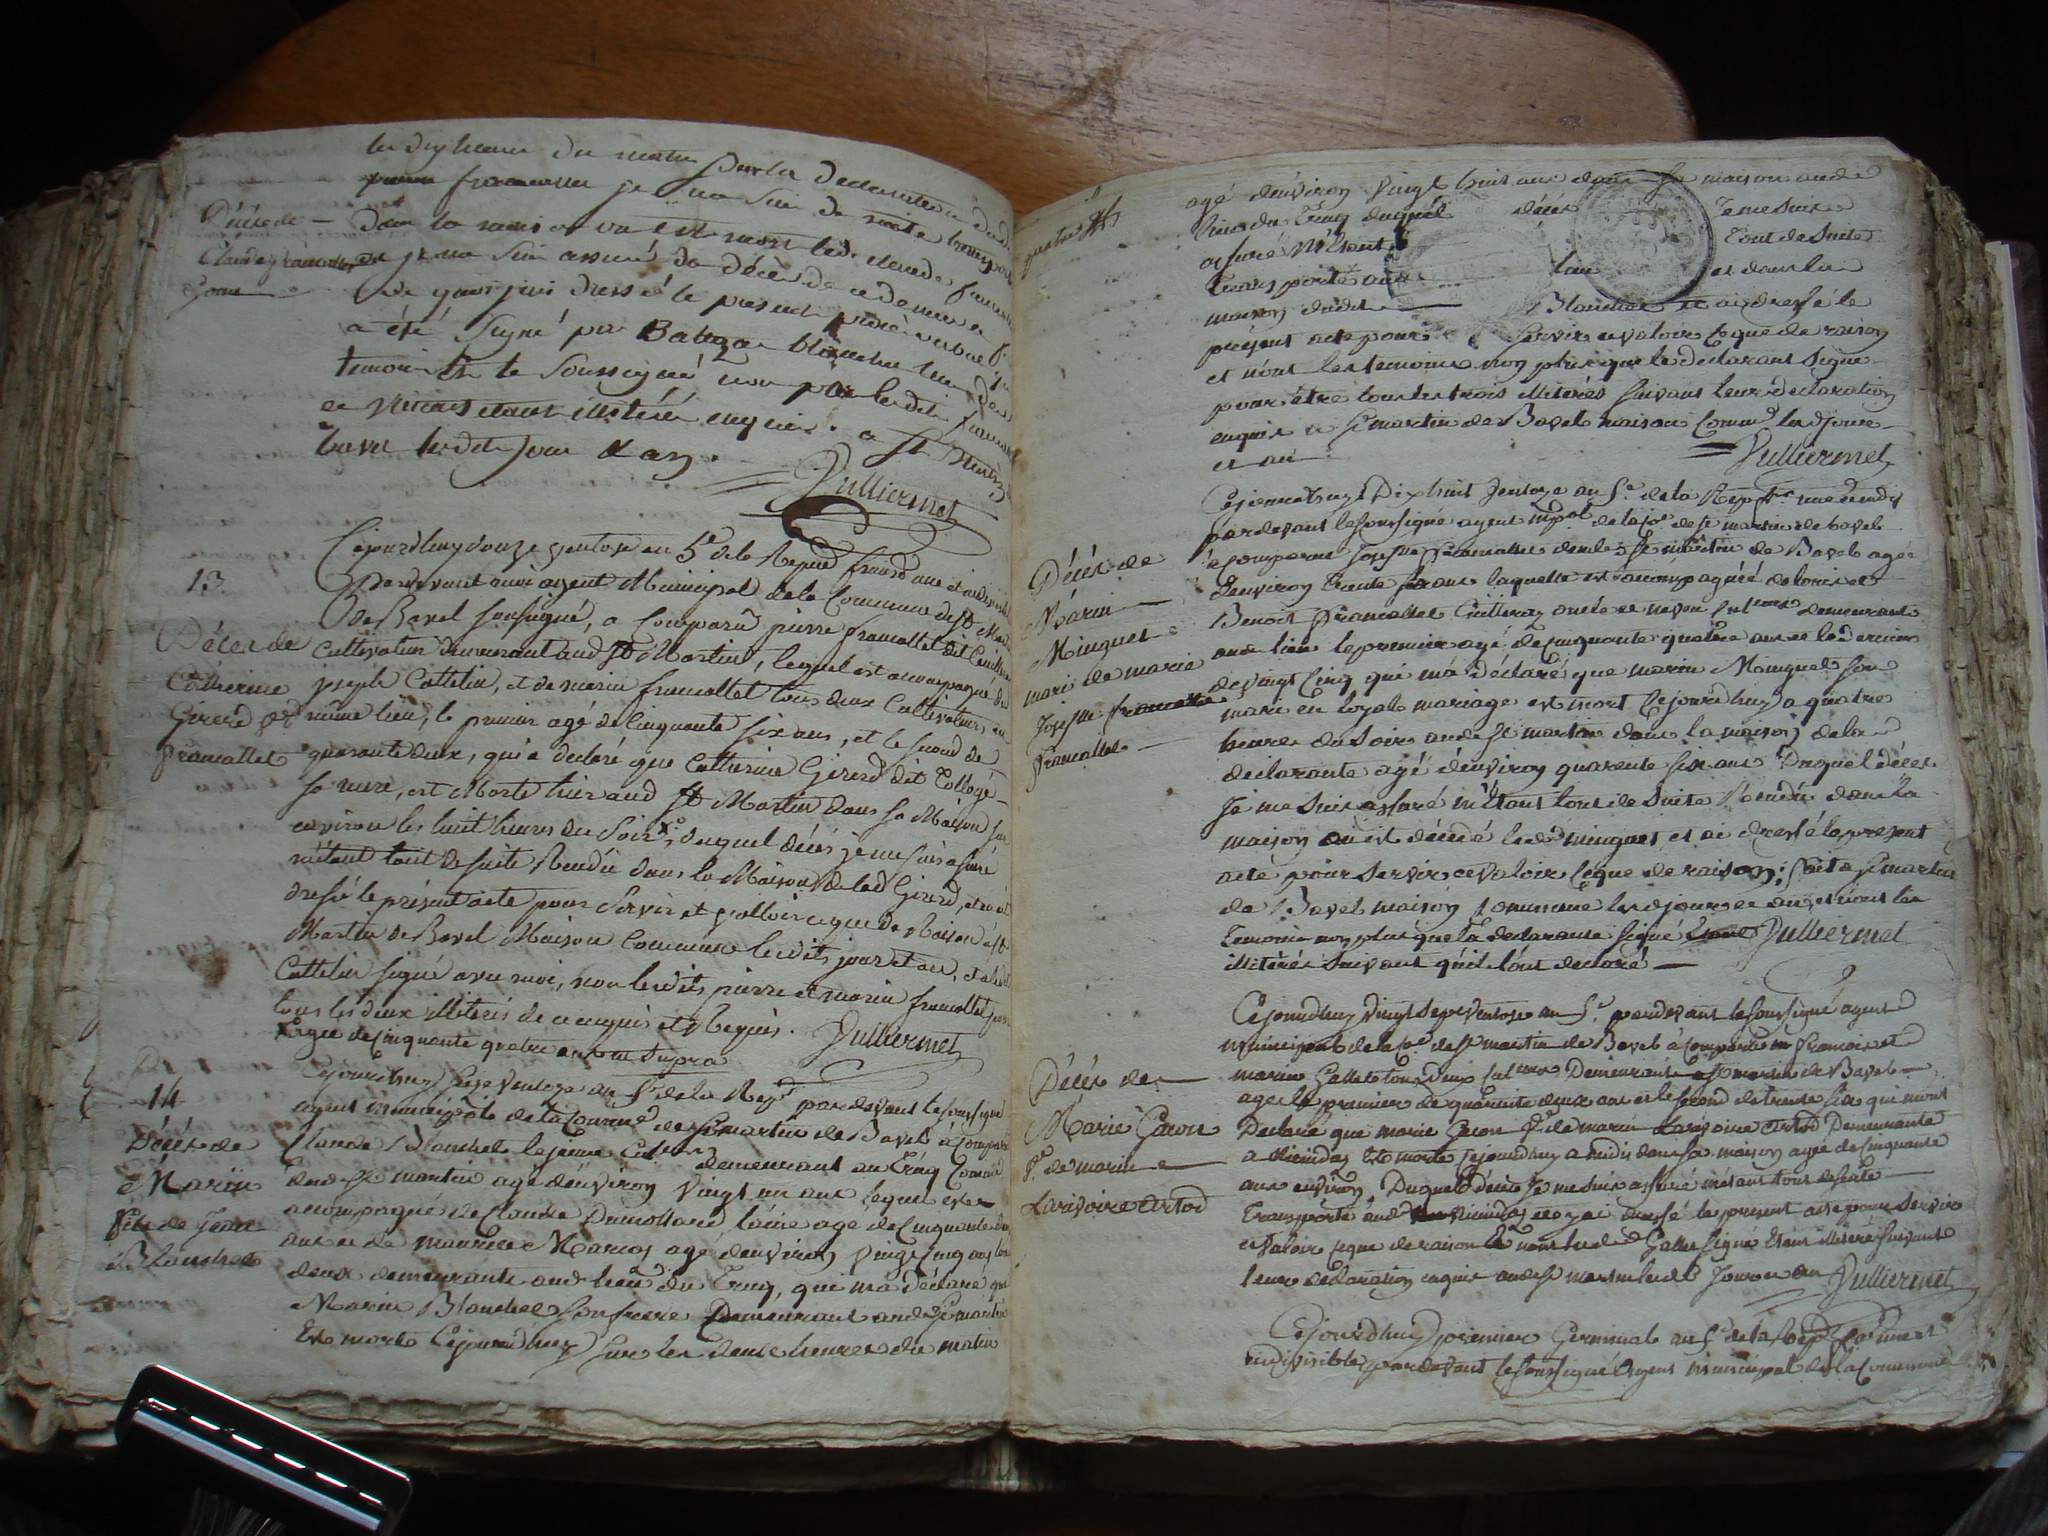 les dix heures du matin sur la declaration
Décès de
dans la maison ou est mort led. claude
je me suis assuré du décès de ce dernier
de quoi j'ai dressé le present procès verbal
a été signé par Baltazar blanchin l'un des
temoins et le soussigné non par ledit francallet
illitéré enquis. a St Martin
Bavel lesdits jour & an.
Julliermet
13
Décès de
Catherine
Girerd ve
francallet
Cejourdhuy douze ventose an 5e de la Repub. franç. une et indivisible
Pardevant moi agent Municipal de la Commune de St Martin
de Bavel soussigné, a comparu pierre francallet dit Cuillere
cultivateur demeurant aud St Martin, lequel est accompagné de
joseph Cattelin, et de marin francallet tous deux cultivateurs au
même lieu, le premier agé de cinquante six ans, et le second de
quarante deux, qui a declaré que Catherine Girerd dit Collogé
sa mere, est Morte hier aud St Martin dans sa Maison sur
environ les huit heures du soir x, duquel décès je me suis assuré
m'étant tout de suite Rendu dans la Maison de lad Girerd, et ai
dressé le présent acte pour servir et valloir ce que de Raison à St
Martin de Bavel Maison Commune lesdits jour et an, et a ledit
Cattelin signé avec moi, non lesdits pierre et marin francallet pour
tous les deux illiterés de ce enquis et Requis. Julliermet
x agee de cinquante quatre ans ut supra
14
Décès de
Marin
fils de Jean
Blanchet
Cejourdhuy seize ventoze an 5e de la Rep. pardevant le soussigné
agent municipal de la Comune de St martin de Bavel à comparu
Claude Blanchet le jeune demeurant au Cruy Commune
dud. St martin agé d'environ vingt un ans lequel est
accompagné de Claude Dumolland laine agé de cinquante
ans et de maurice Marcoz agé d'environ vingt cinq ans tous
deux demeurants aud. lieu du Cruy, qui m'a declaré que
Marin Blanchet son frere Demeurant aud. St martin
Est mort Cejourdhuy sur les deux heures du matin
agé d'environ vingt huit ans dans sa maison aud.
lieu du Cruy duquel décès je me suis
assuré m'étant tout de suite
transporté aud. lieu et dans la
maison dudit Blanchet et ai dressé le
présent acte pour servir et valoir ce que de raison
et n'ont les temoins non plus que le declarant signé
pour être tous les trois illiterés suivant leur declaration
enquis a St martin de Bavel maison Comune lesd. jour
et an
Julliermet
Décès de
Marin
Minguet
mari de marie
Josephte francallet
francallet
Cejourdhuy Dix huit ventoze an 5e de la Rep. fse une et indiv
pardevant le soussigné agent mpal de la Coe de St martin de bavel
à comparue Josephte francallet demeurant St martin de Bavel agée
d'environ trente ans laquelle est accompagnée de louis et
Benoit francallet Cuilleraz oncle et neveu demeurant
aud. lieu le premier agé de cinquante quatre ans et le dernier
de vingt cinq qui m'a déclaré que marin Minguet son
mari en loyal mariage est mort Cejourdhuy a quatre
heures du soir aud. St martin dans la maison de la
déclarante agé d'environ quarante six ans Duquel décès
Je me suis assuré m'étant tout de suite Rendu dans la
maison où est décédé led. minguet, et ai dressé le present
acte pour servir et valoir ce que de raison; fait a St martin
de Bavel maison Commune lesd. jour et an, et n'ont les
temoins non plus que la declarante signé Julliermet
illiterés suivant qu'ils l'ont declaré
Décès de
Marie Gacon
fe de marin
Larivoire Ertod
Cejourdhuy vingt sept ventose an 5e pardevant le soussigné agent
municipal de la Coe de St martin de Bavel à comparu francois et
marin Gallet tous deux Demeurants a St martin de Bavel
agés le premier de quarante deux ans et le second de trente six qui m'ont
Declaré que marie Gacon fe de marin Larivoire Ertod Demeurante
a est morte Cejourdhuy a midis dans sa maison agée de cinquante
ans environ, Duquel décès Je me suis assuré m'étant tout de suite
transporté aud. et y ai dressé le present acte pour servir
et valoir ce que de raison et n'ont lesd. Gallet signé étant illiterés suivant
leur declaration enquis aud. St martin lesd. Jour et an Julliermet
Cejourdhuy premier Germinal an 5e de la Rep. fse une et
indivisible, pardevant le soussigné Agent municipal de la Commune